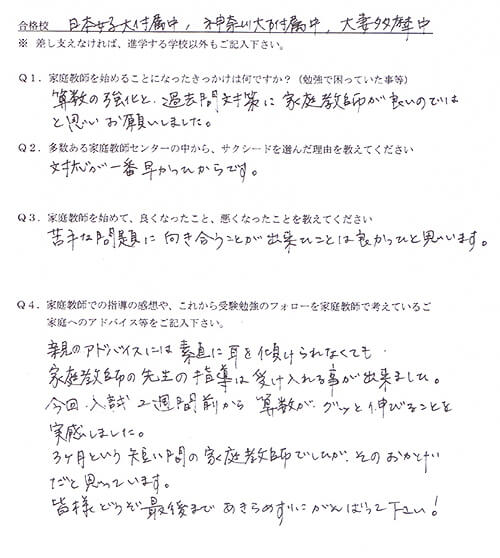 合格校 日本女子大付属中, 神奈川大付属中, 大妻多摩中
※ 差し支えなければ、進学する学校以外もご記入下さい。
Q1．家庭教師を始めることになったきっかけは何ですか？（勉強で困っていた事等）
算数の強化と、過去問対策に家庭教師が良いのでは
と思いお願いしました。
Q2．多数ある家庭教師センターの中から、サクシードを選んだ理由を教えてください
対応が一番早かったからです。
Q3．家庭教師を始めて、良くなったこと、悪くなったことを教えてください
苦手な問題に向き合うことが出来たことは良かったと思います。
Q4．家庭教師での指導の感想や、これから受験勉強のフォローを家庭教師で考えているご
家庭へのアドバイス等をご記入下さい。
親のアドバイスには素直に耳を傾けられなくても
家庭教師の先生の指導は受け入れる事が出来ました。
今回、入試2週間前から算数が、グッと伸びることを
実感しました。
3ヶ月という短い間の家庭教師でしたが、そのおかげ
だと思っています。
皆様どうぞ最後まであきらめずにがんばって下さい！